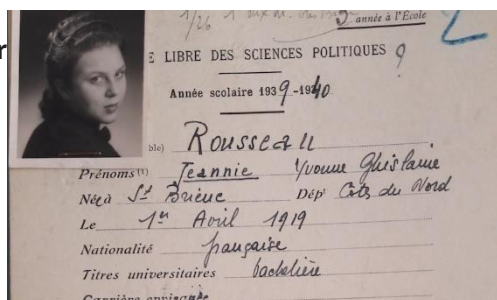 année à l'École
E LIBRE DES SCIENCES POLITIQUES
Année scolaire 1939-1940
ble) Rousseau
Prénoms (1) Jeannie Yvonne Ghislaine
Né à St Brieuc Dépt Côtes du Nord
Le 1er Avril 1919
Nationalité française
Titres universitaires bachelière
Carrière envisagée